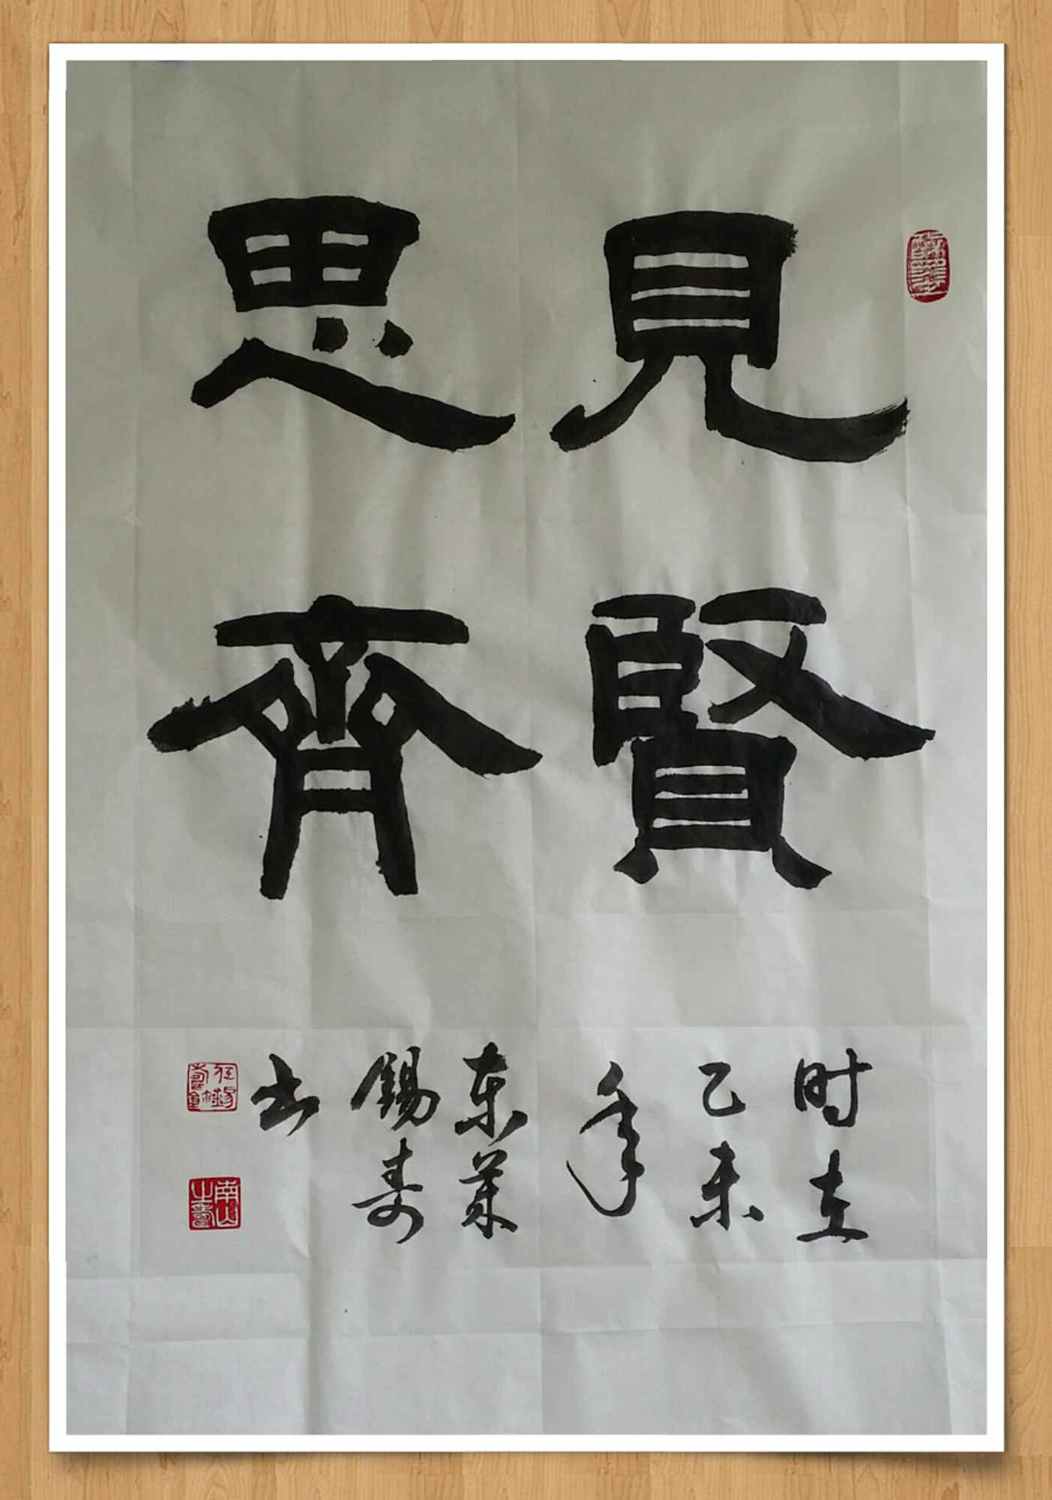 見賢
思齊
时在
乙未
年
东莱
錫寿
书
南山